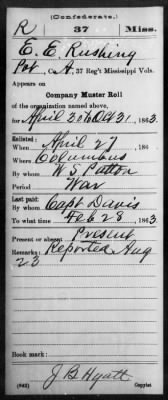 (Confederate.)
R 37 Miss.
E. E. Rushing
Pvt, Co. A, 37 Reg't Mississippi Vols.
Appears on
Company Muster Roll
of the organization named above,
for April 30 to Oct 31, 1863.
Enlisted:
When April 27, 186
Where Columbus
By whom W S Patton
Period War
Last paid:
By whom Capt Davis
To what time Feb 28, 1863.
Present or absent Present
Remarks: Reported Aug
23
Book mark:
J. B. Hyatt
(642) Copyist.